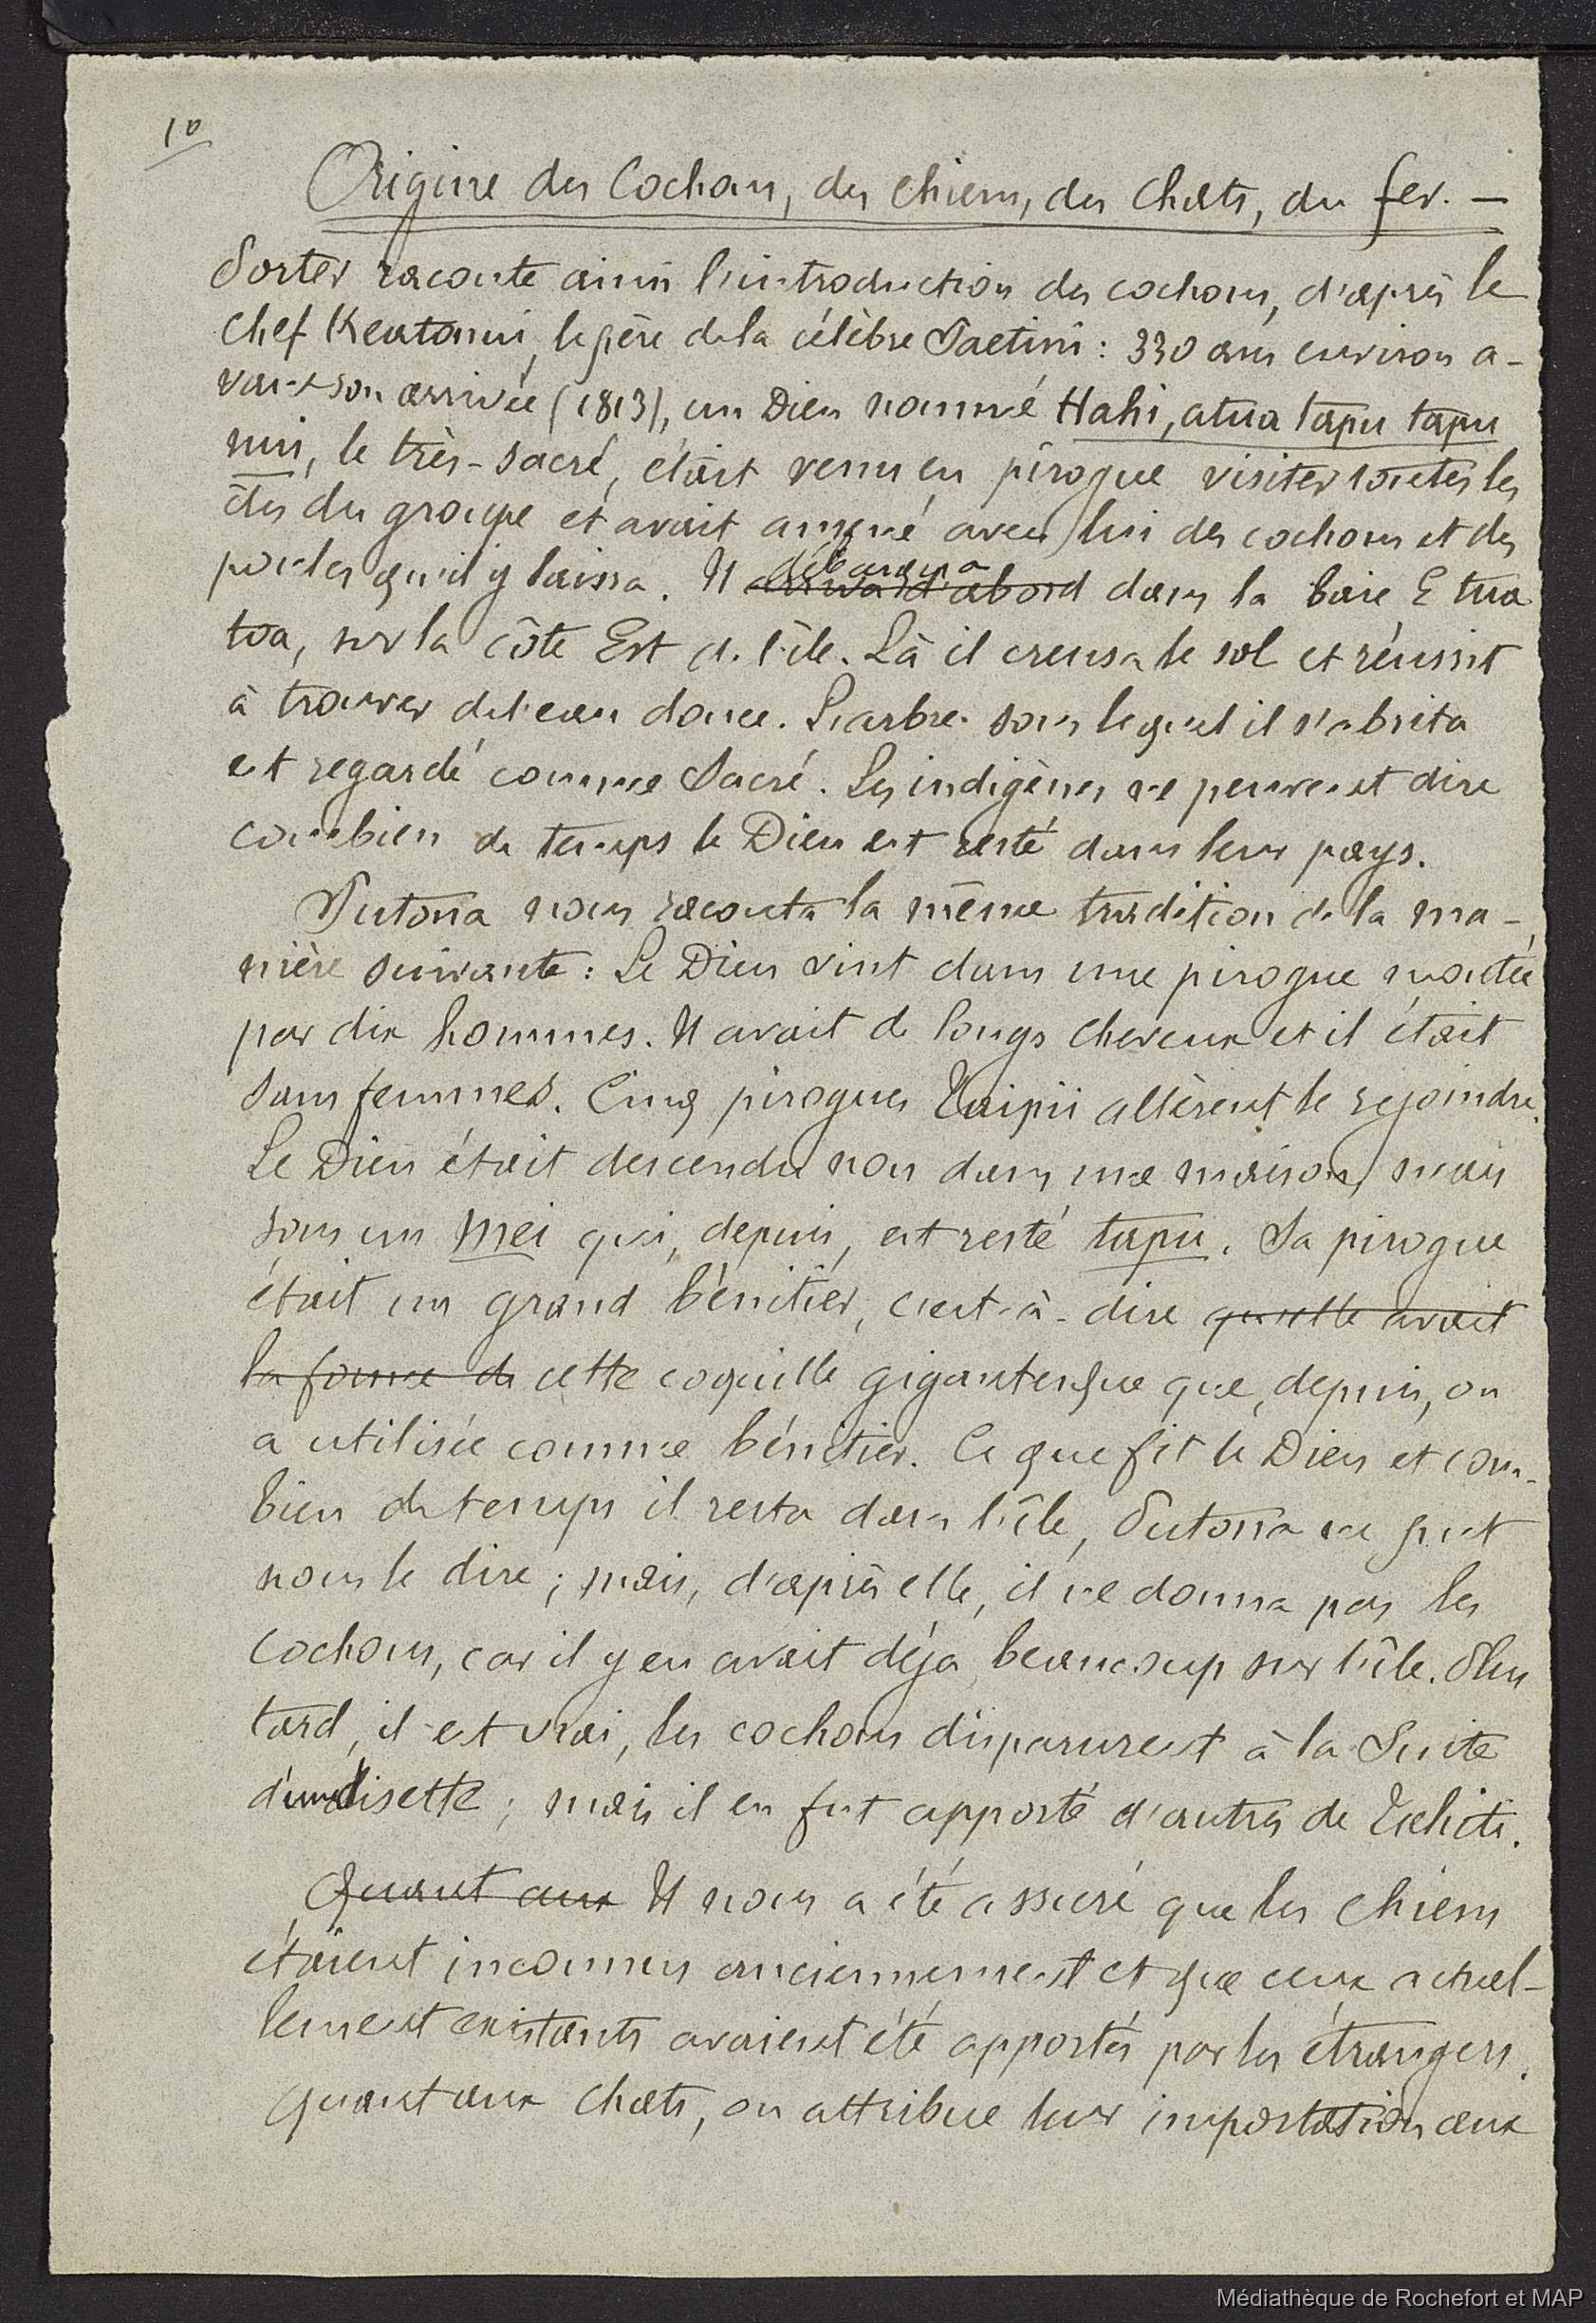 10
Origine des Cochons, des chiens, des Chats, du fer. —
Porter raconte ainsi l'introduction des cochons, d'après le
chef Keatonui, le père de la célèbre Paetini : 330 ans environ a-
vant son arrivée (1813), un Dieu nommé Hahi, atua tapu tapu
nui, le très-sacré, était venu en pirogue visiter toutes les
îles du groupe et avait amené avec lui des cochons et des
poules qu'il y laissa. Il arriva d'abord débarqua dans la baie E tua
toa, sur la côte Est de l'île. Là il creusa le sol et réussit
à trouver de l'eau douce. L'arbre sous lequel il s'abrita
est regardé comme Sacré. Les indigènes ne peuvent dire
combien de temps le Dieu est resté dans leur pays.
Putona nous raconta la même tradition de la ma-
nière suivante : Le Dieu vint dans une pirogue montée
par dix hommes. Il avait de longs cheveux et il était
sans femmes. Cinq pirogues Taipii allèrent le rejoindre.
Le Dieu était descendu non dans une maison, mais
sous un mei qui, depuis, est resté tapu. Sa pirogue
était un grand bénitier, c'est-à-dire qu'elle avait
la forme de cette coquille gigantesque que, depuis, on
a utilisée comme bénitier. Ce que fit le Dieu et com-
bien de temps il resta dans l'île, Putona ne put
nous le dire ; mais, d'après elle, il ne donna pas les
cochons, car il y en avait déjà beaucoup sur l'île. Plus
tard, il est vrai, les cochons disparurent à la Suite
d'une disette ; mais il en fut apporté d'autres de Tahiti.
Quant aux Il nous a été assuré que les chiens
étaient inconnus anciennement et que ceux actuel-
lement existants avaient été apportés par les étrangers.
Quant aux Chats, on attribue leur importation aux
Médiathèque de Rochefort et MAP